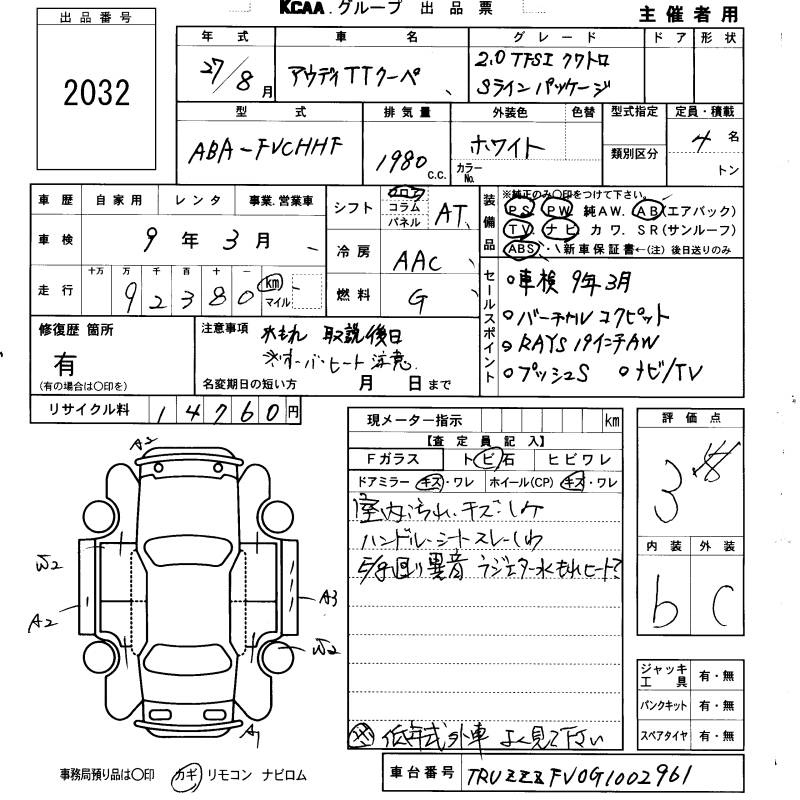 KCAA.グループ 出品票
主催者用
出品番号
2032
年式 車名 グレード ドア 形状
27/8月 アウディTTクーペ 2.0 TFSI クワトロ
Sラインパッケージ
型式 排気量 外装色 色替 型式指定 定員・積載
ABA-FVCHHF 1980 C.C. ホワイト 類別区分 4名
カラーNo. トン
車歴 自家用 レンタ 事業.営業車
車検 9年3月
走行 十万 万 千 百 十 一
92380 km マイル
シフト フロア コラム パネル AT
冷房 AAC
燃料 G
装備品 ※純正のみ〇印をつけて下さい。
PS PW 純AW. AB(エアバック)
TV ナビ カワ. SR(サンルーフ)
ABS ・新車保証書←(注)後日送りのみ
セールスポイント
○車検 9年3月
○バーチャルコクピット
○RAYS 19インチAW
○プッシュS ○ナビ/TV
修復歴 箇所
有
(有の場合は〇印を)
注意事項 水もれ 取説後日
※オーバーヒート注意
名変期日の短い方 月 日まで
リサイクル料 14760円
現メーター指示 km
【査定員記入】
Fガラス トビ石 ヒビワレ
ドアミラー キズ・ワレ ホイール(CP) キズ・ワレ
室内汚れ.キズ.シケ
ハンドル・シートスレ・しわ
E/g回り異音 ラジエター水もれヒート?
低年式外車 よく見て下さい
評価点
3
内装 外装
b C
ジャッキ工具 有・無
パンクキット 有・無
スペアタイヤ 有・無
A2
W2
A2
A3
W2
A1
事務局預り品は〇印 カギ リモコン ナビロム
車台番号 TRUZZZFV0G1002961